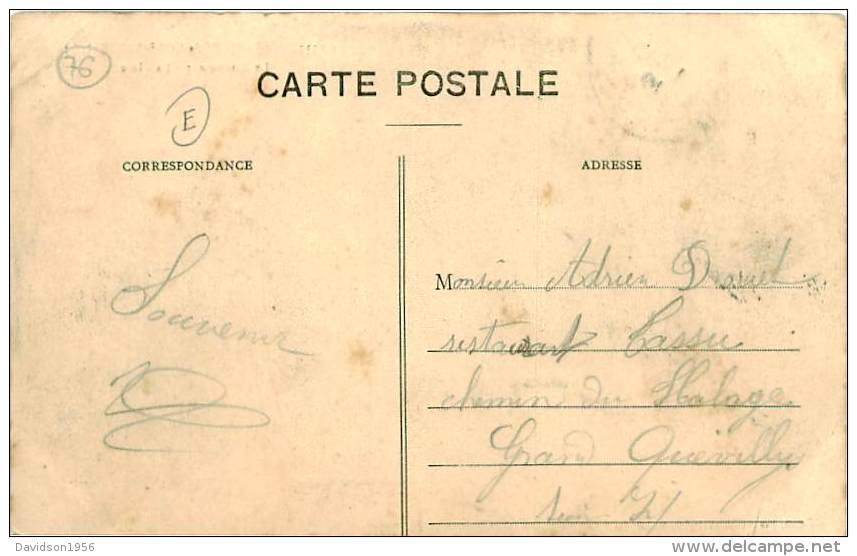 76
CARTE POSTALE
E
CORRESPONDANCE
ADRESSE
Souvenir
Monsieur Adrien
restaurant Cassu
chemin du Halage
Grand Quevilly
Davidson1956
www.delcampe.net